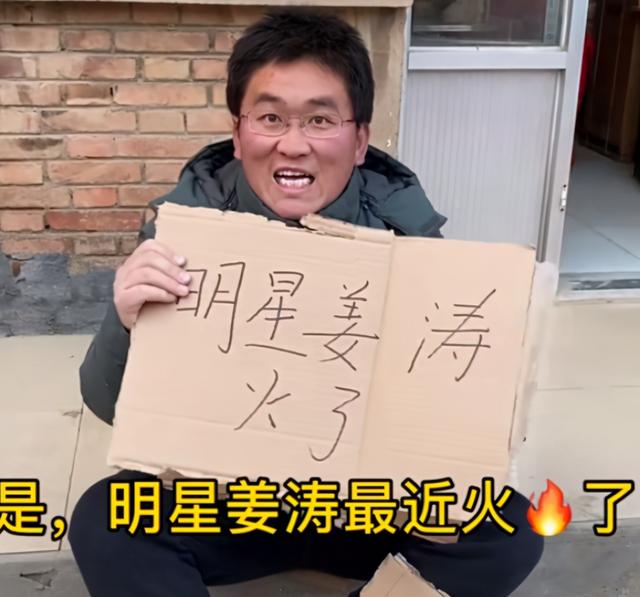 明星姜涛
火了
是，明星姜涛最近火🔥了